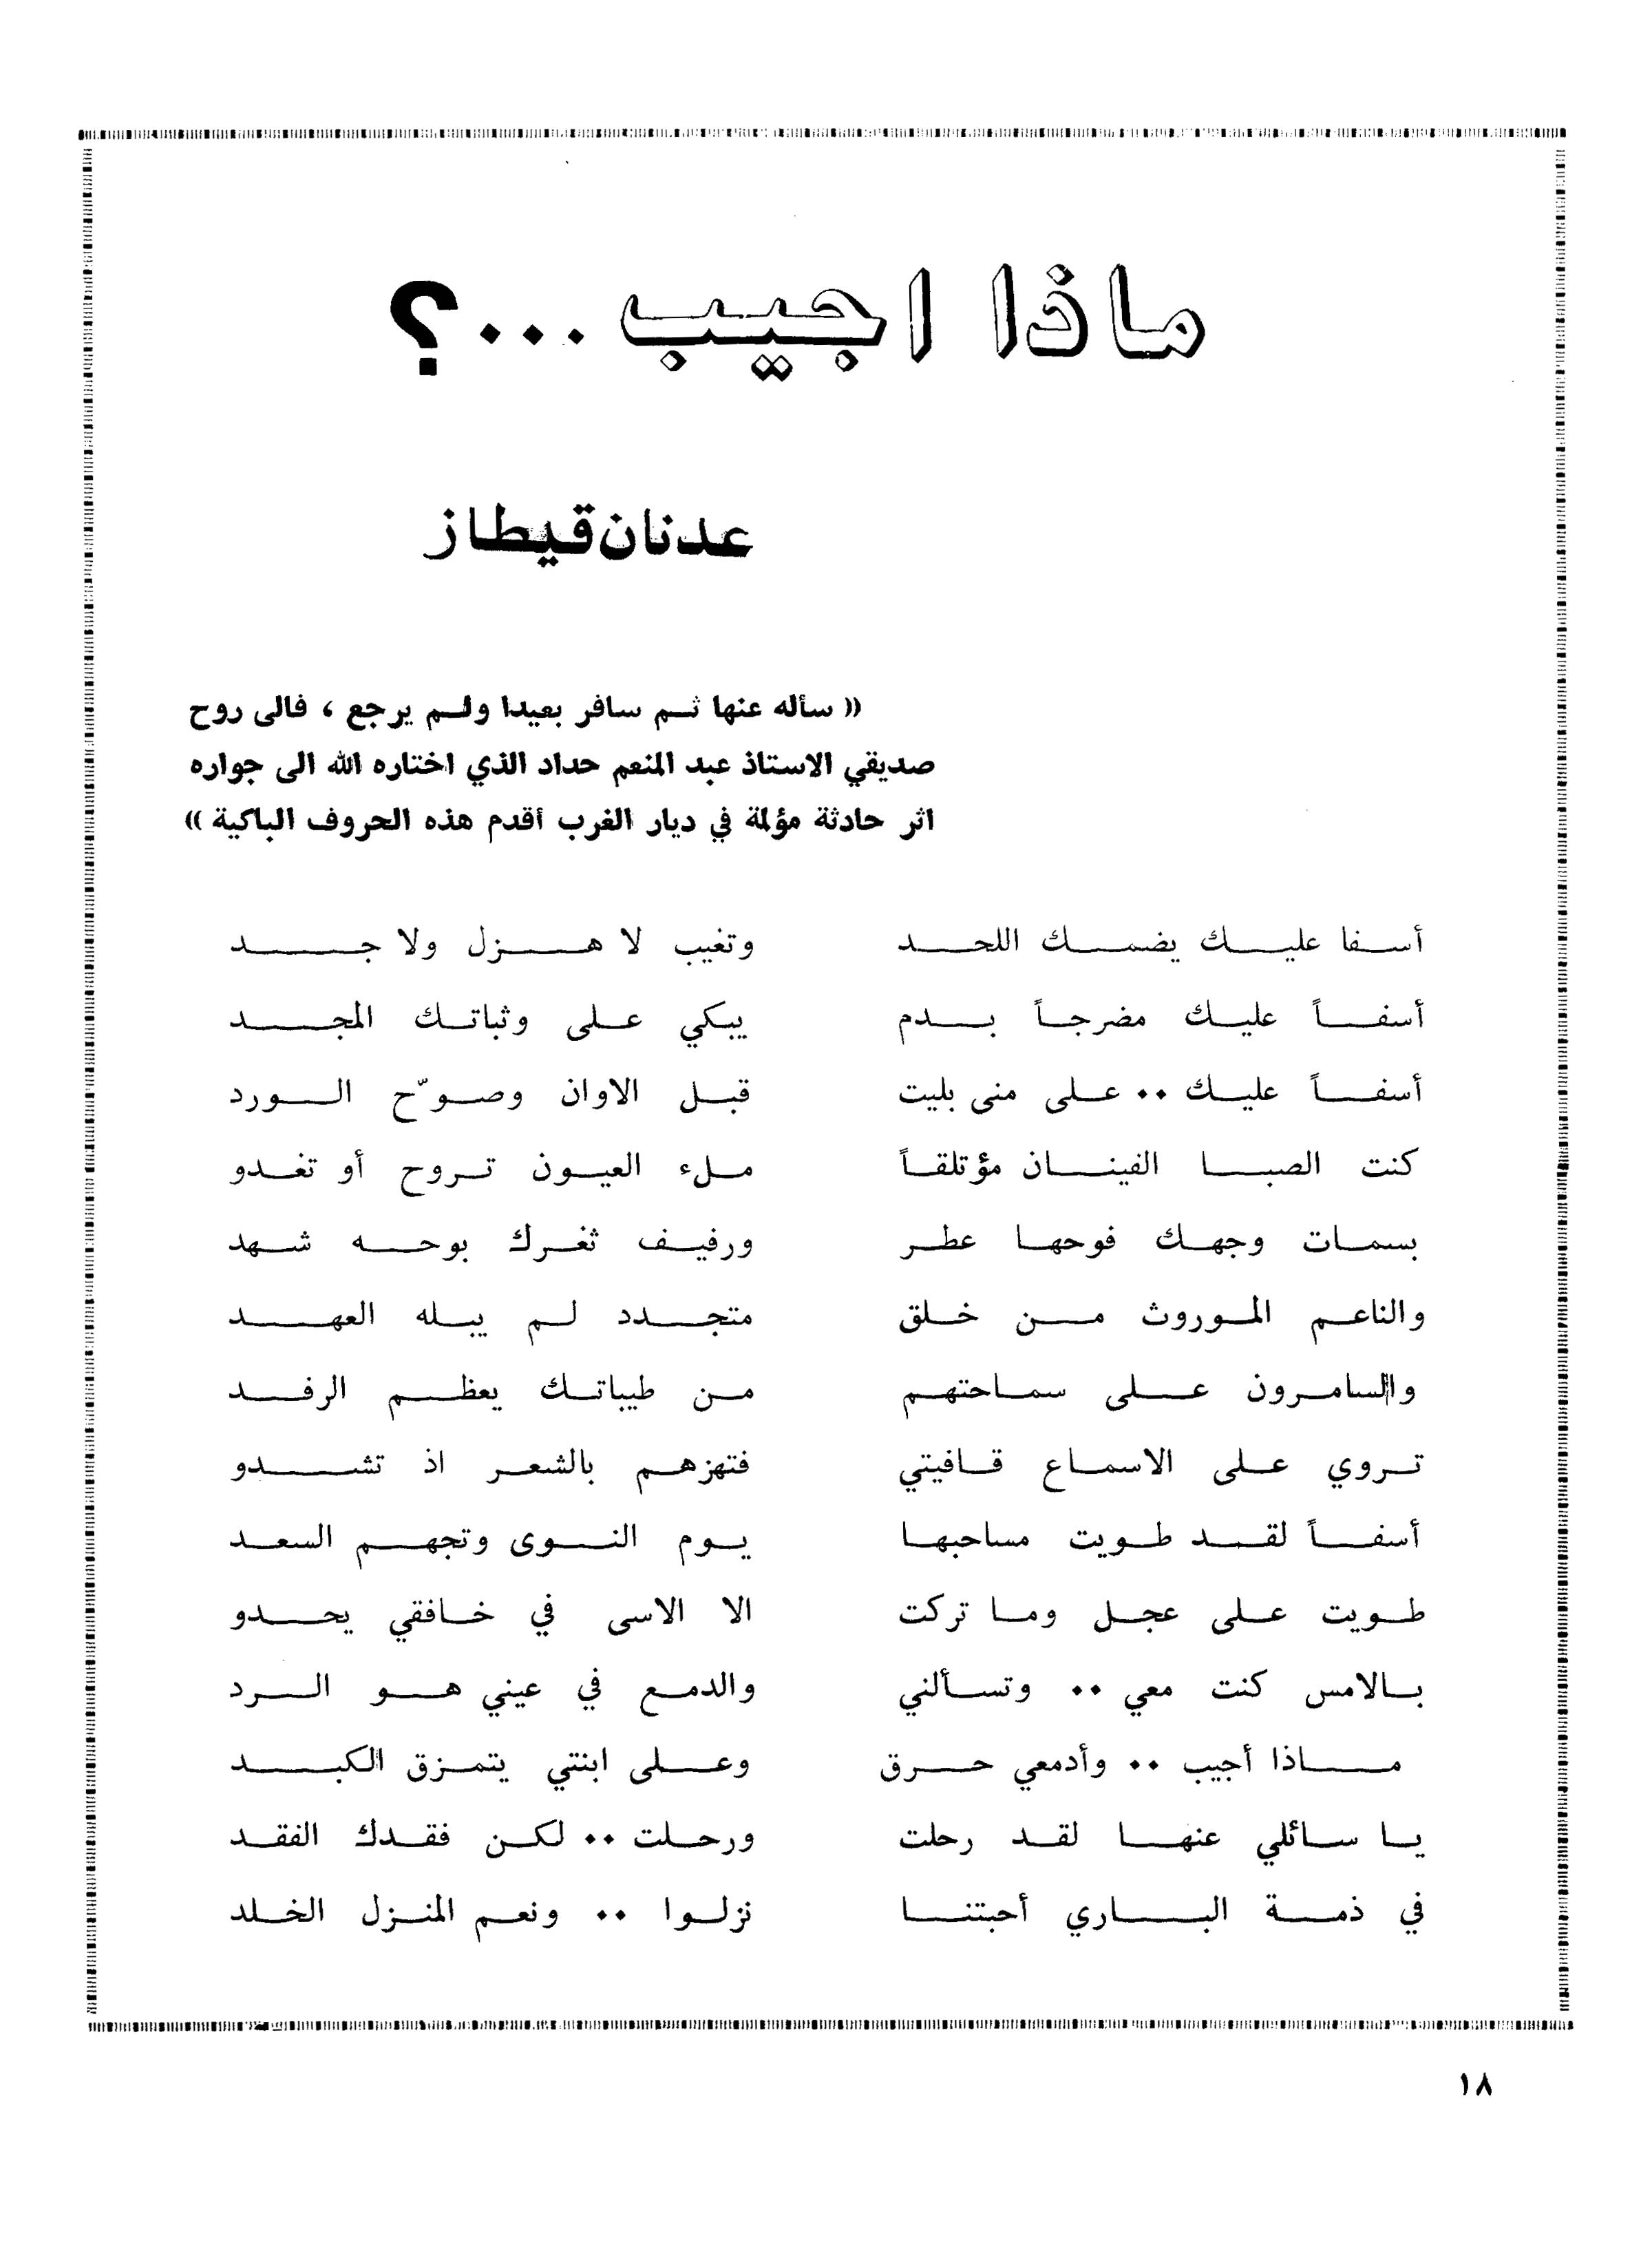 ماذا اجيب ...؟
عدنان قيطاز
« سأله عنها ثم سافر بعيدا ولم يرجع ، فالى روح
صديقي الاستاذ عبد المنعم حداد الذي اختاره الله الى جواره
اثر حادثة مؤلمة في ديار الغرب أقدم هذه الحروف الباكية »
أسفا عليك يضمك اللحد وتغيب لا هزل ولا جد
أسفاً عليك مضرجاً بدم يبكي على وثباتك المجد
أسفاً عليك .. على منى بليت قبل الاوان وصوّح الورد
كنت الصبا الفينان مؤتلقاً ملء العيون تروح أو تغدو
بسمات وجهك فوحها عطر ورفيف ثغرك بوحه شهد
والناعم الموروث من خلق متجدد لم يبله العهد
والسامرون على سماحتهم من طيباتك يعظم الرفد
تروي على الاسماع قافيتي فتهزهم بالشعر اذ تشدو
أسفاً لقد طويت مساحبها يوم النوى وتجهم السعد
طويت على عجل وما تركت الا الاسى في خافقي يحدو
بالامس كنت معي .. وتسألني والدمع في عيني هو الرد
ماذا أجيب .. وأدمعي حرق وعلى ابنتي يتمزق الكبد
يا سائلي عنها لقد رحلت ورحلت .. لكن فقدك الفقد
في ذمة الباري أحبتنا نزلوا .. ونعم المنزل الخلد
١٨